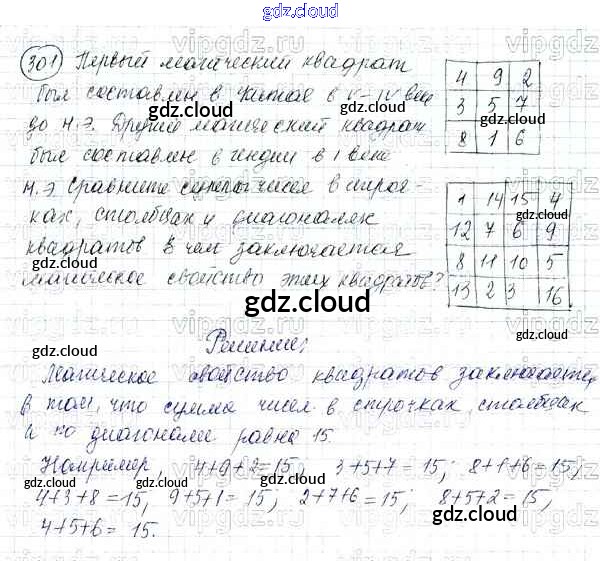 gdz.cloud
301 Первый магический квадрат
был составлен в Китае в V-IV веке
до н.э. Другой магический квадрат
был составлен в Индии в I веке
н.э. Сравните суммы чисел в строч-
ках, столбцах и диагоналях
квадратов. В чем заключается
магическое свойство этих квадратов?
4 9 2
3 5 7
8 1 6
1 14 15 4
12 7 6 9
8 11 10 5
13 2 3 16
gdz.cloud
Решение:
Магическое свойство квадратов заключается
в том, что сумма чисел в строчках, столбцах
и по диагонали равна 15.
Например, 4+9+2=15; 3+5+7=15; 8+1+6=15;
4+3+8=15; 9+5+1=15; 2+7+6=15; 8+5+2=15,
4+5+6= 15.